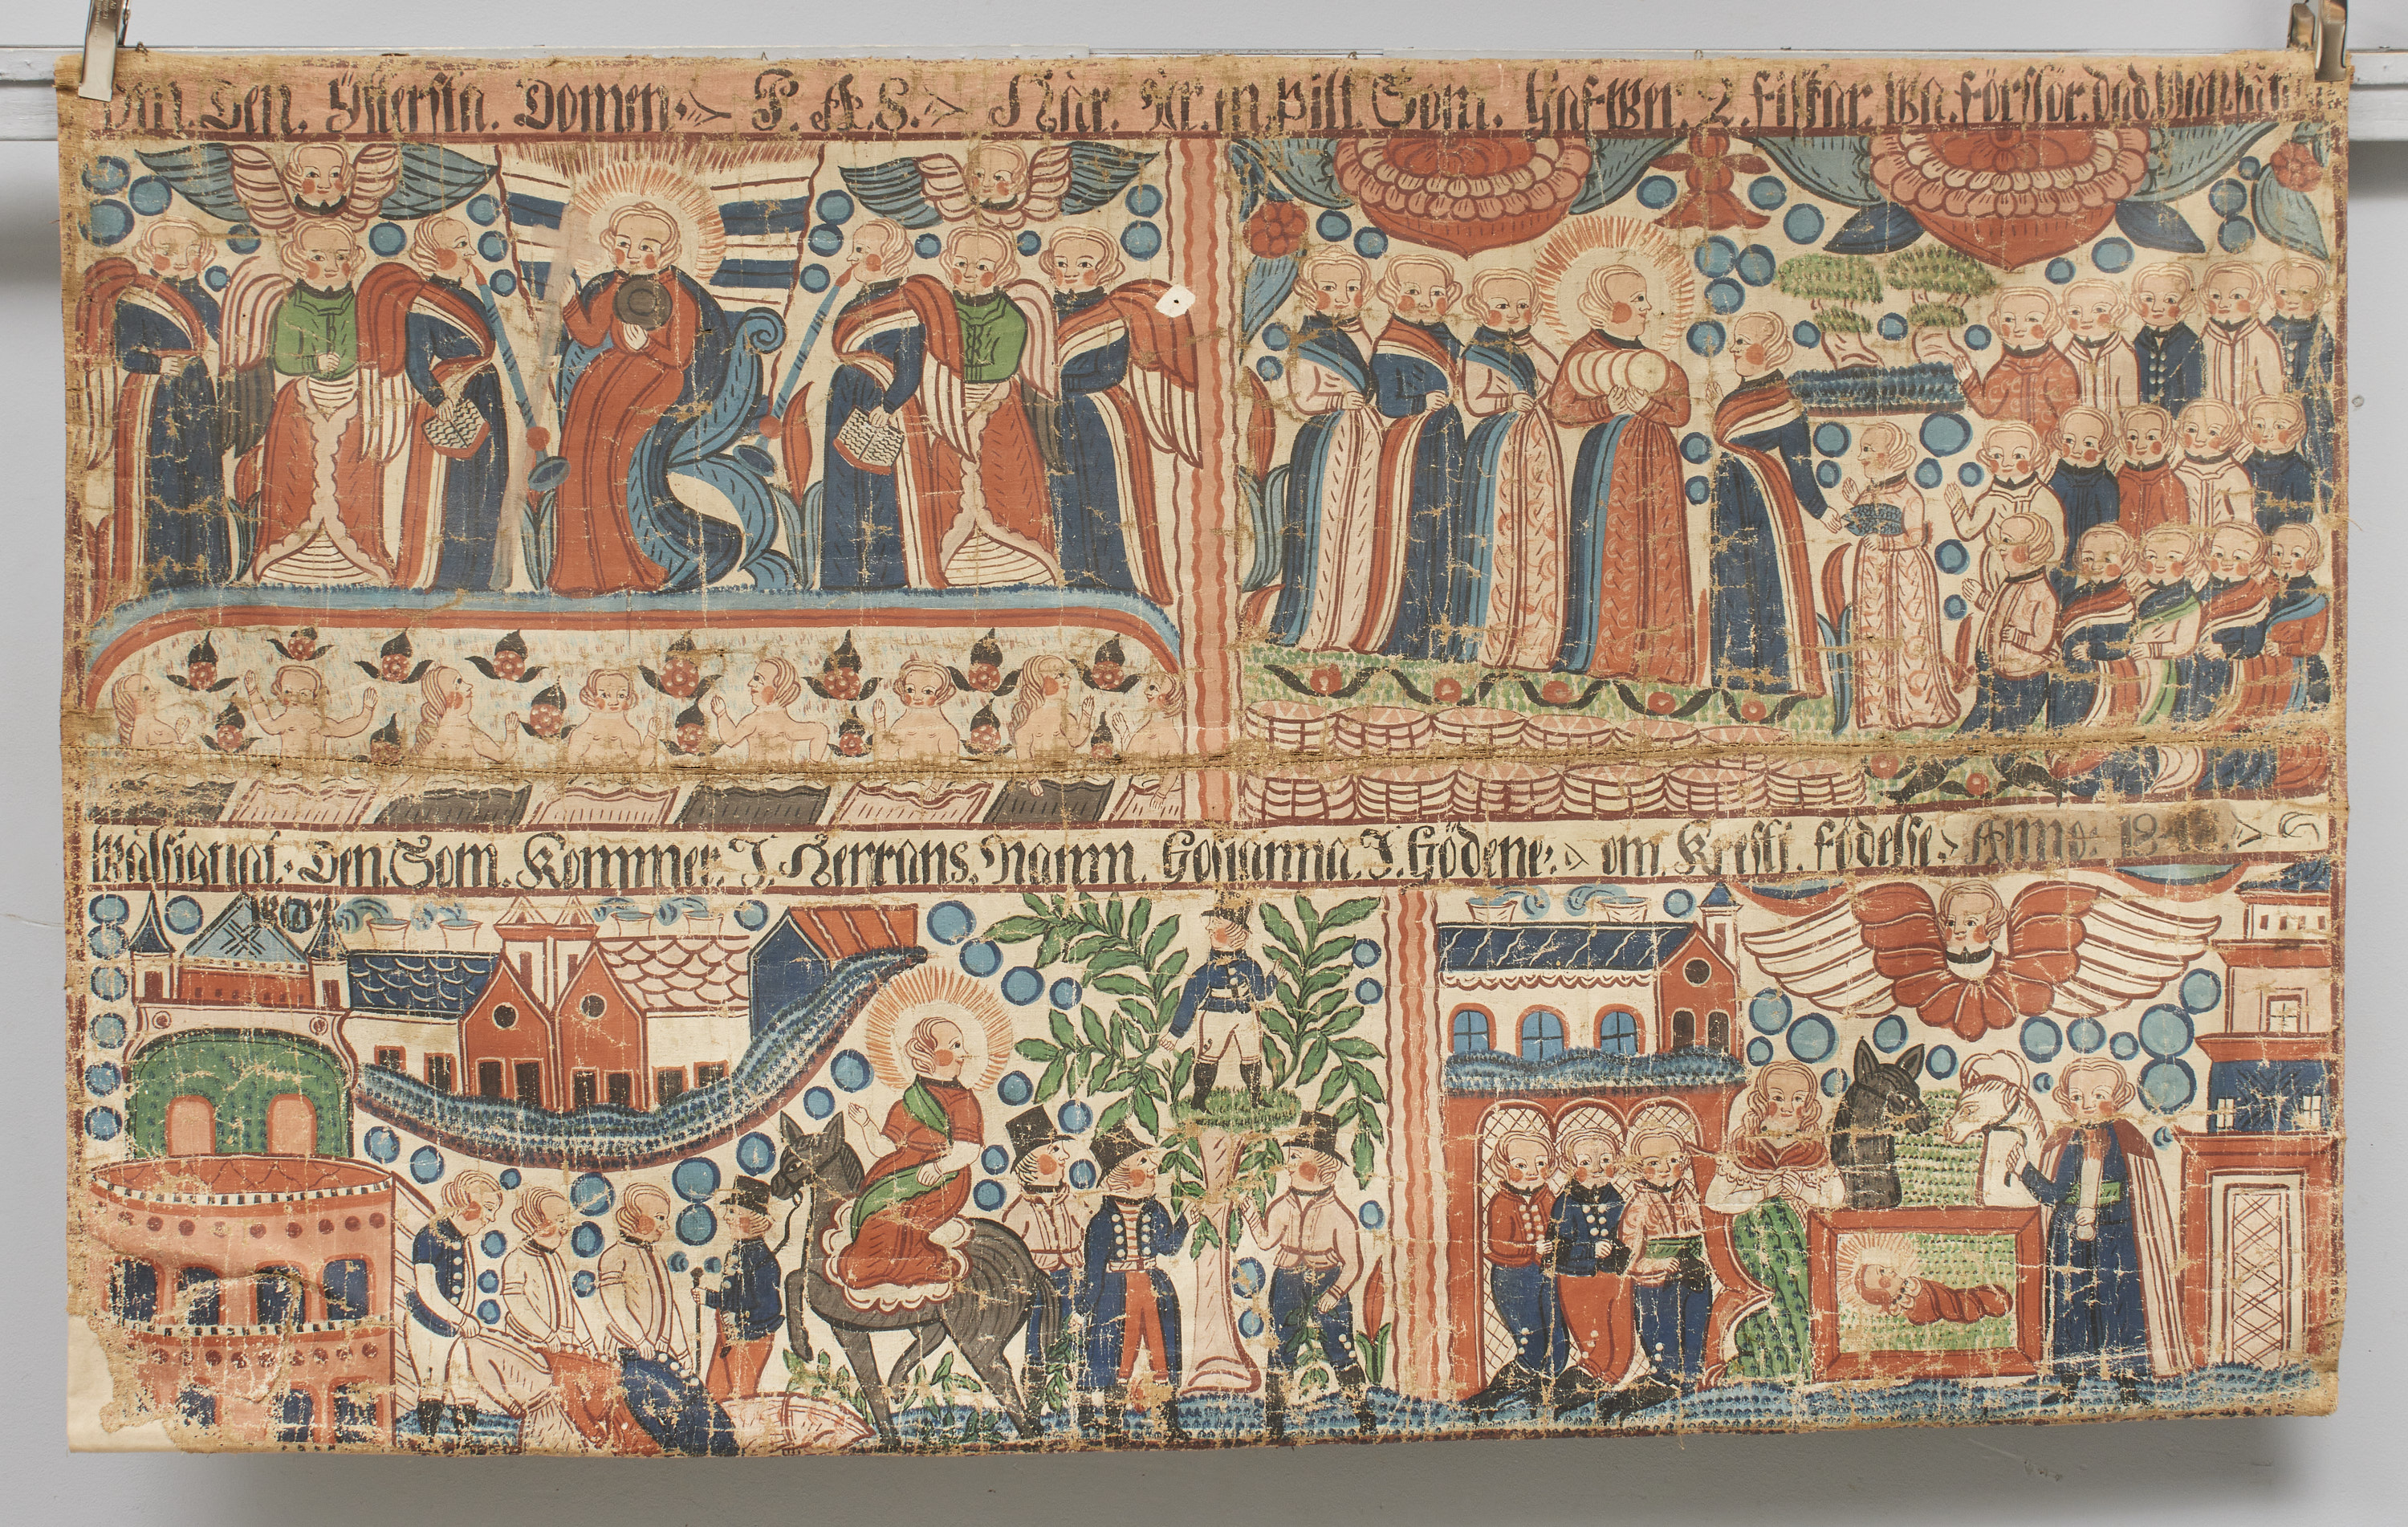 om. Den. Ytersta. Domen. P. A. S. När. Är. en. Pilt. Som. Hafwer. 2. fiskar.
Wälsignat. Den. Som. Kommer. I. Herrans. Namn. Hosianna. I. Högdene. om. Kresti. födelse. Anno: